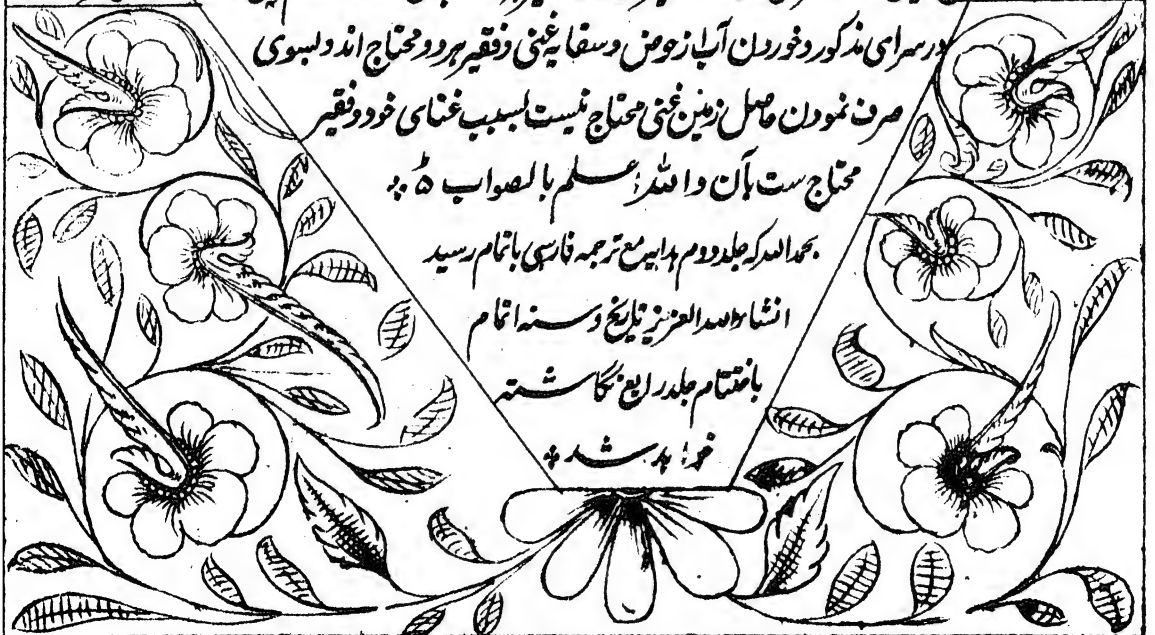 در سرای مذکور و خوردن آب از حوض و سقایه غنی و فقیر هر دو محتاج اند و بسوی
صرف نمودن حاصل زمین غنی محتاج نیست بسبب غنای خود و فقیر
محتاج ست بآن و الله اعلم بالصواب
بحمد الله که جلد دوم هدایه مع ترجمه فارسی باتمام رسید
انشاء الله العزیز تاریخ و سنه اتمام
باختتام جلد رابع نگاشته
خواهد شد